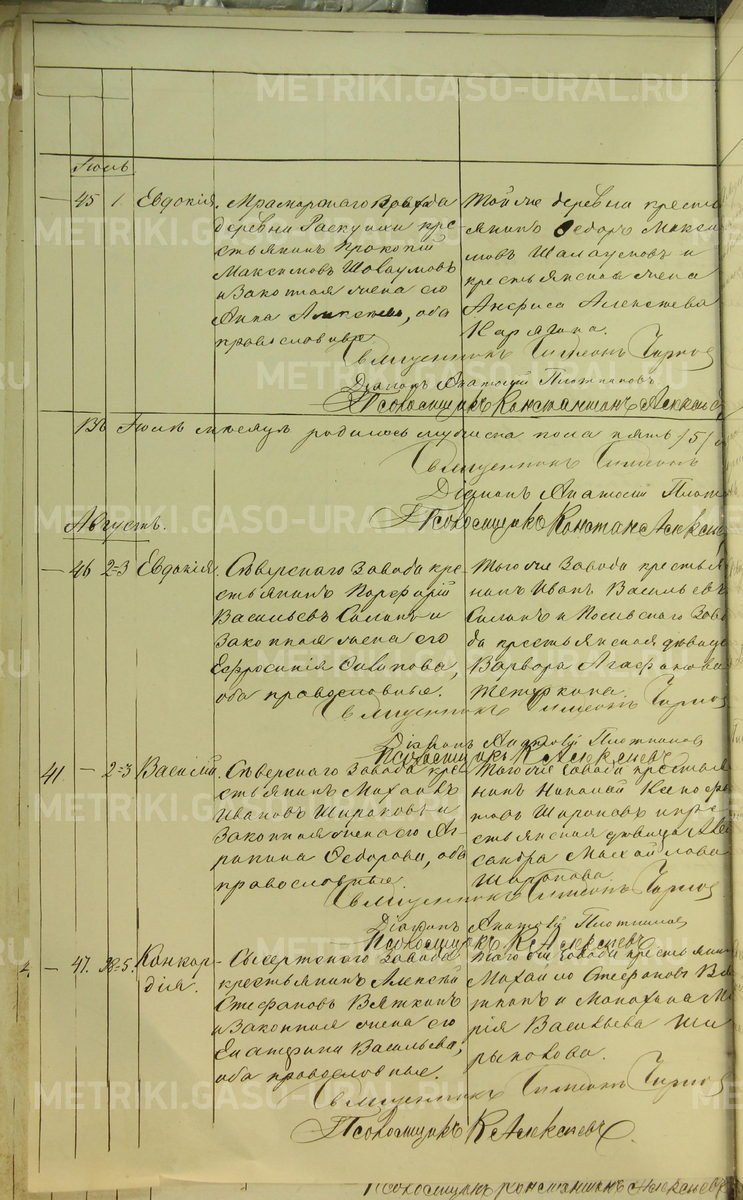 Іюль
45 1 Евдокія. Мраморскаго Завода
деревни Раскуихи кре-
стьянинъ Прокопій
Максимовъ Шалаумовъ
и законная жена его
Анна Алексѣева, оба
православные.
Той же деревни кресть-
янинъ Ѳедоръ Макси-
мовъ Шалаумовъ и
крестьянская жена
Анфиса Алексѣева
Карягина.
Священникъ Симеонъ
Діаконъ Анатолій Плотниковъ
Псаломщикъ Константинъ Алексѣев
Въ Іюлѣ мѣсяцѣ родилось мужеска пола пять /5/
Священникъ Симеонъ
Діаконъ Анатолій Плот
Псаломщикъ Констан. Алексѣев
Августъ.
46 2=3 Евдокія. Сѣверскаго Завода кре-
стьянинъ Порфирій
Васильевъ и
законная жена его
Ефросинія
оба православные.
Того же Завода крестья-
нинъ Иванъ Васильевъ
и Полевскаго Заво-
да крестьянская дѣвица
Варвара Агафонова
Священникъ Симеонъ
Діаконъ Анатолій Плотниковъ
Псаломщикъ К. Алексѣевъ
41 2=3 Василій. Сѣверскаго Завода кре-
стьянинъ Михаилъ
Ивановъ Широковъ и
законная жена его Аг-
рипина Ѳедорова, оба
православные.
Того же Завода крестья-
нинъ Николай
Широковъ и кре-
стьянская дѣвица Алек
сандра Михайлова
Широкова.
Священникъ Симеонъ
Діаконъ Анатолій Плотниковъ
Псаломщикъ К. Алексѣевъ
47. =5. Конкор-
дія.
Сысертскаго Завода
крестьянинъ Алексѣй
Стефановъ Вяткинъ
и законная жена его
Екатерина Васильева,
оба православные.
Того же Завода крестьянин
Михаило Стефановъ Вя
ткинъ и Ма
рія Васильева
Священникъ Симеонъ
Псаломщикъ К. Алексѣевъ.
Псаломщикъ Константинъ Алексѣевъ
METRIKI.GASO-URAL.RU